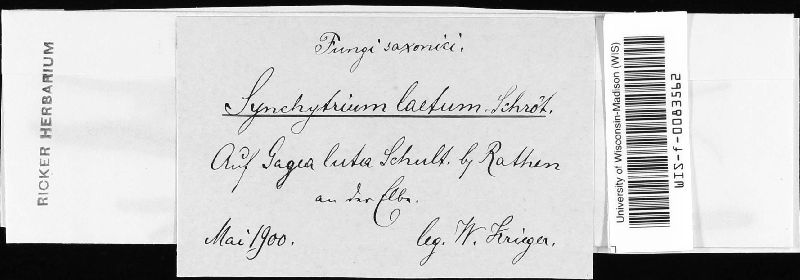 RICKER HERBARIUM
Fungi saxonici.
Synchytrium laetum. Schröt.
Auf Gagea lutea Schult. bj Rathen
an der Elbe.
Mai 1900. leg. W. Krieger.
University of Wisconsin-Madison (WIS)
WIS-f-0083562